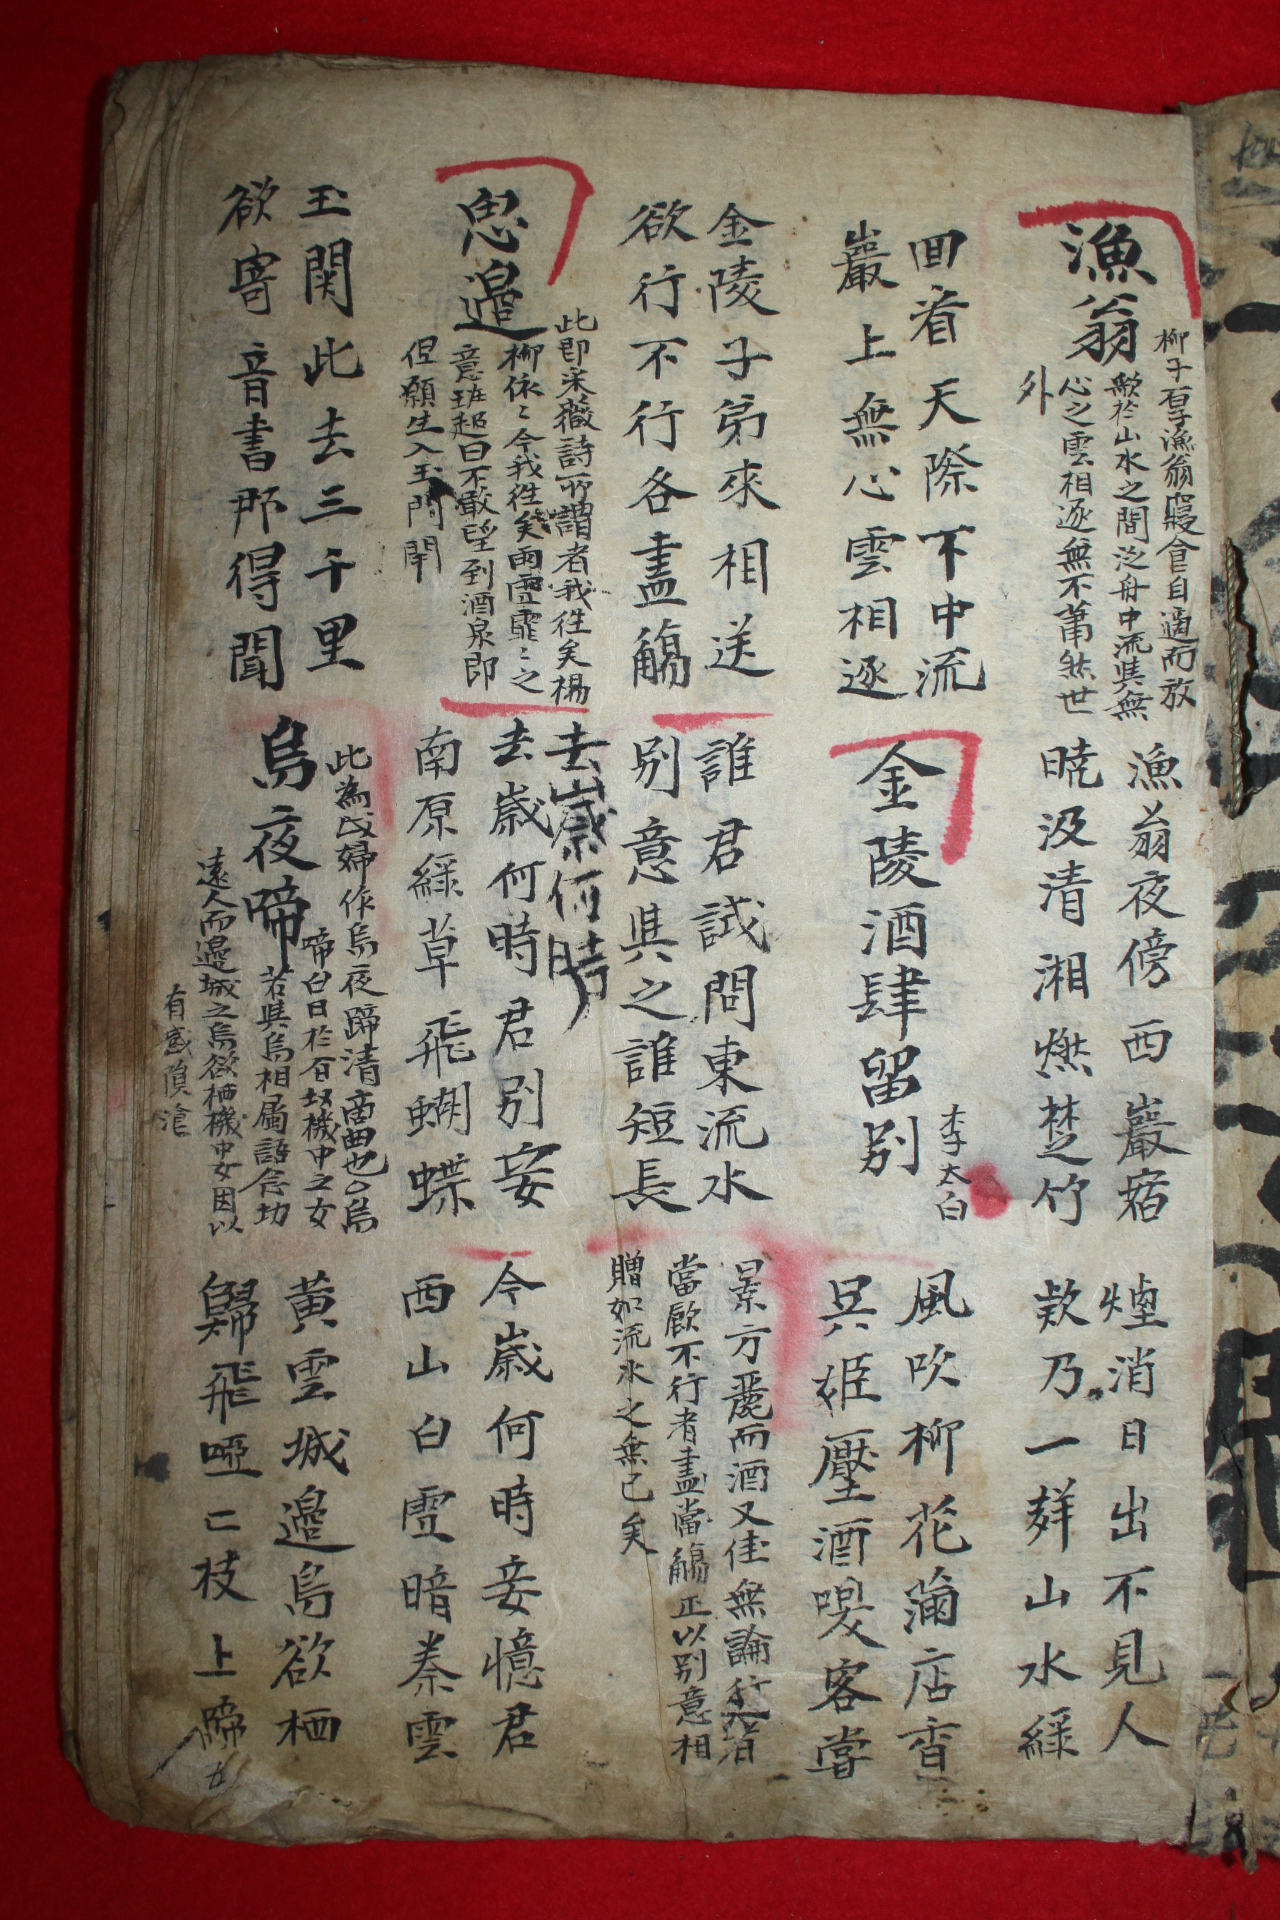 漁翁
柳子厚漁翁寢食自適而放
歌於山水之間泛舟中流與無
心之雲相逐無不蕭然世
外
漁翁夜傍西巖宿
暁汲清湘燃楚竹
煙消日出不見人
欵乃一聲山水綠
回看天際下中流
巖上無心雲相逐
金陵酒肆留別
李太白
風吹柳花滿店香
吳姬壓酒喚客嘗
金陵子弟來相送
欲行不行各盡觴
誰君試問東流水
別意與之誰短長
景方麗而酒又佳無論行者
當厭不行者盡當觴正以別意相
贈如流水之無已矣
思邉
此即采薇詩所謂者我徃矣楊
柳依〻今我徃矣雨雪霏〻之
意班超曰不敢望到酒泉即
但願生入玉門関
去歲何時
去歲何時君別妾
南原綠草飛蝴蝶
今歲何時妾憶君
西山白雪暗秦雲
玉関此去三千里
欲寄音書那得聞
烏夜啼
此為戍婦作烏夜啼清商曲也烏
啼白日於機中之女
若與烏相屬語念功
遠人而邉城之烏欲栖機中女因以
有感隕滄
黃雲城邉烏欲栖
歸飛啞〻枝上啼